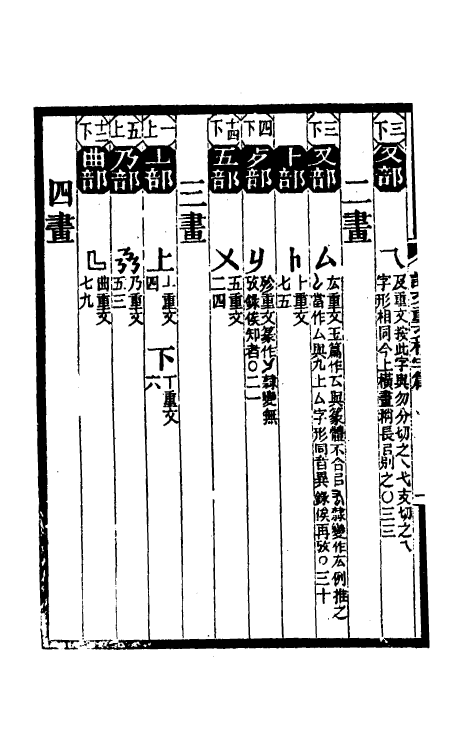 三下
又部
乁 及重文按此字與勿分切之乀弋支切之乁
字形相同今上橫畫稍長㠯別之〇三三
二畫
三下
又部
厶 厷重文玉篇作厷與篆體不合㠯隸變作厷例推之
當作厶與九上厶字形同音異錄俟再攷〇三十
卜部
卜重文
七五
四下
歺部
歺重文篆作隸變無
攷錄俟知者〇二一
十四下
五部
㐅 五重文
二四
三畫
一上
丄部
上 丄重文
四
下 丅重文
六
五上
乃部
乃重文
五三
十二下
曲部
曲重文
七九
四畫